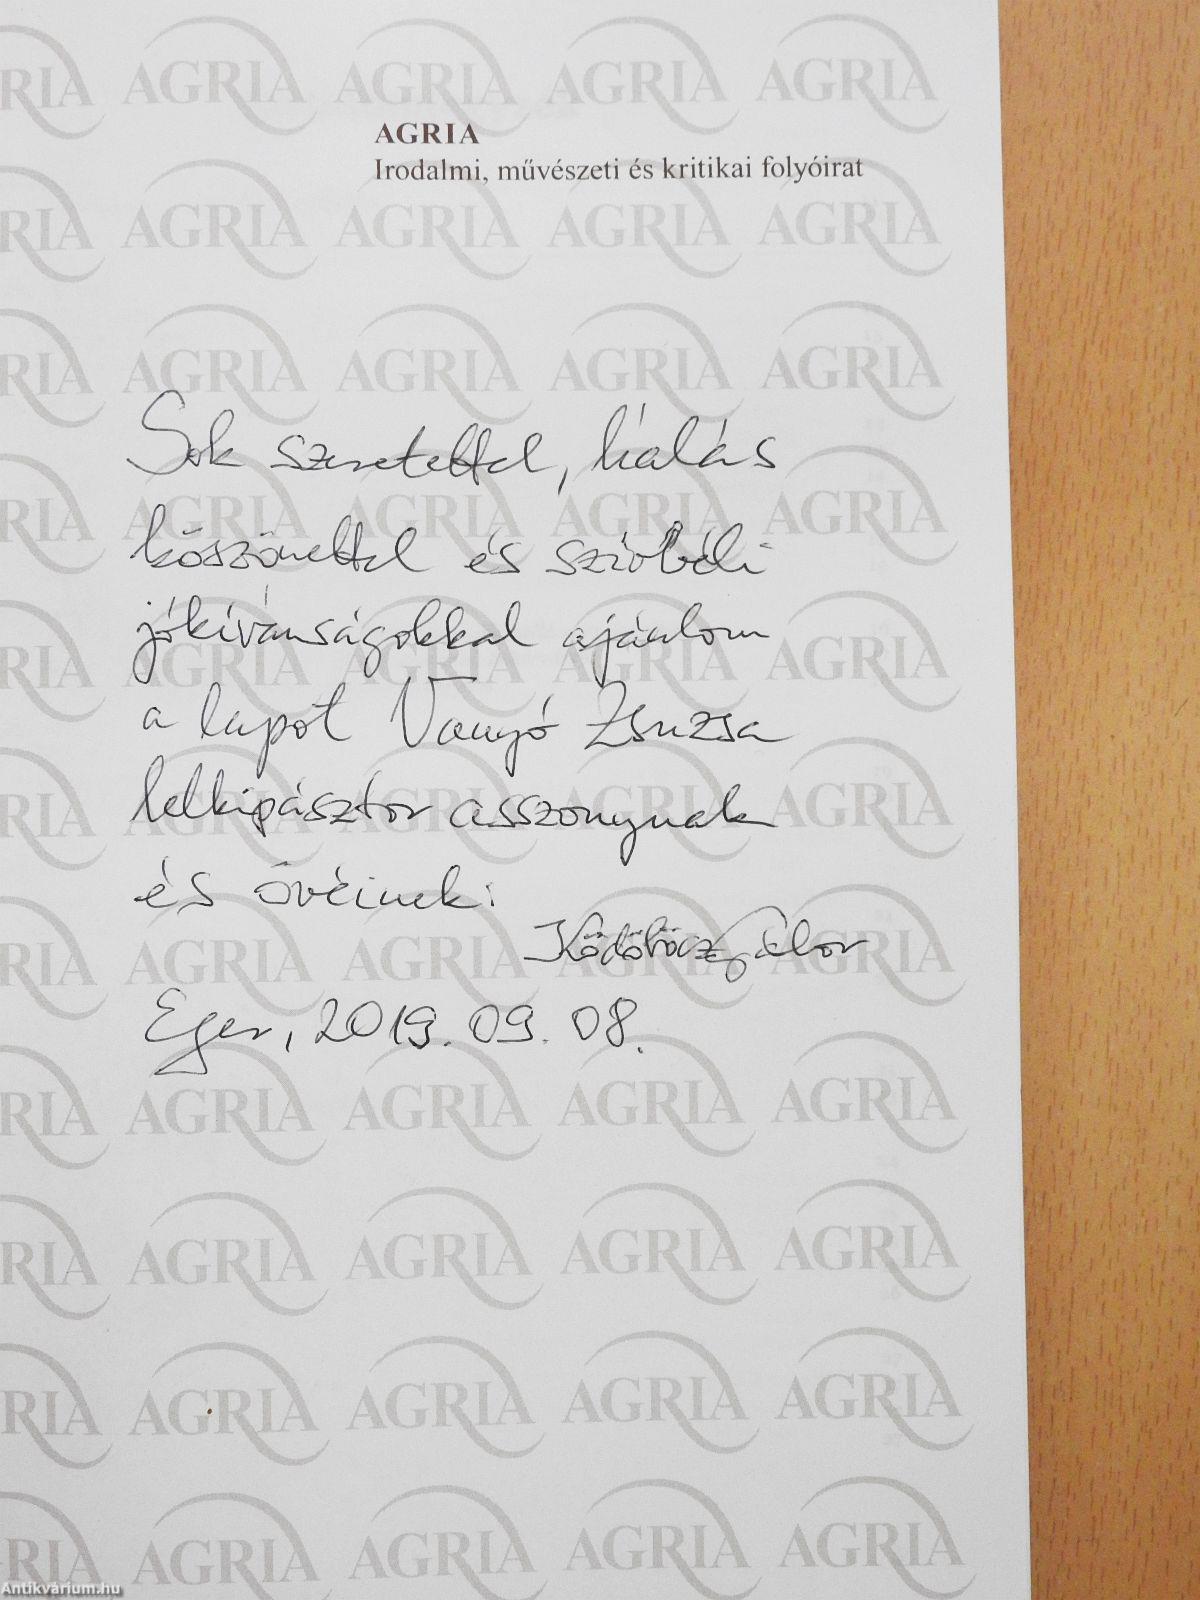 AGRIA
Irodalmi, művészeti és kritikai folyóirat
Sok szeretettel, hálás
köszönettel és szívbéli
jókívánságokkal ajánlom
a lapot Vanyó Zsuzsa
lelkipásztor asszonynak
és övéinek:
Ködöböcz Gábor
Eger, 2019. 09. 08.
Antikvárium.hu